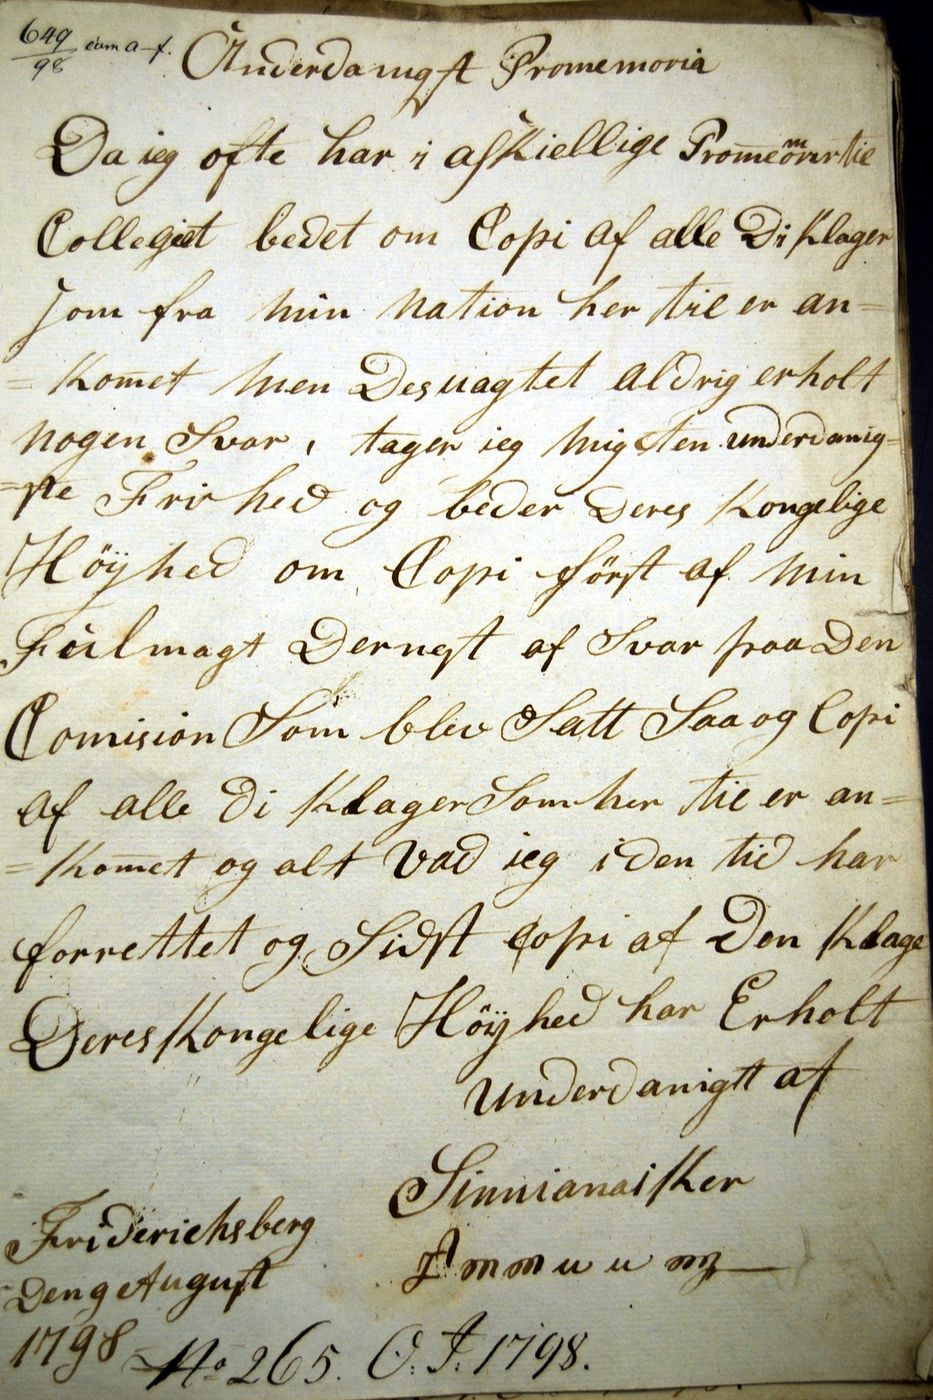 649/98 cum a-f.
Underdanigst Promemoria
Da ieg ofte har i afskiellige til
Collegiet bedet om Copi af alle Di Klager
som fra min nation her til er an=
=kom̄et men Desuagtet aldrig erholt
nogen Svar, tager ieg mig den underdanig=
=ste Frihed og beder Deres Kongelige
Höÿhed om Copi först af min
Fulmagt Dernest af Svar paa Den
Comision Som blev Satt Saa og Copi
af alle Di Klager Som her til er an=
=kom̄et og alt Vad ieg i den tid har
forrettet og Sidst Copi af Den Klage
Deres Kongelige Höÿhed har Erholt
Underdanigtt af
Sinnianaiker
Friderichsberg
Den 9 August
1798
No 265. O: I: 1798.